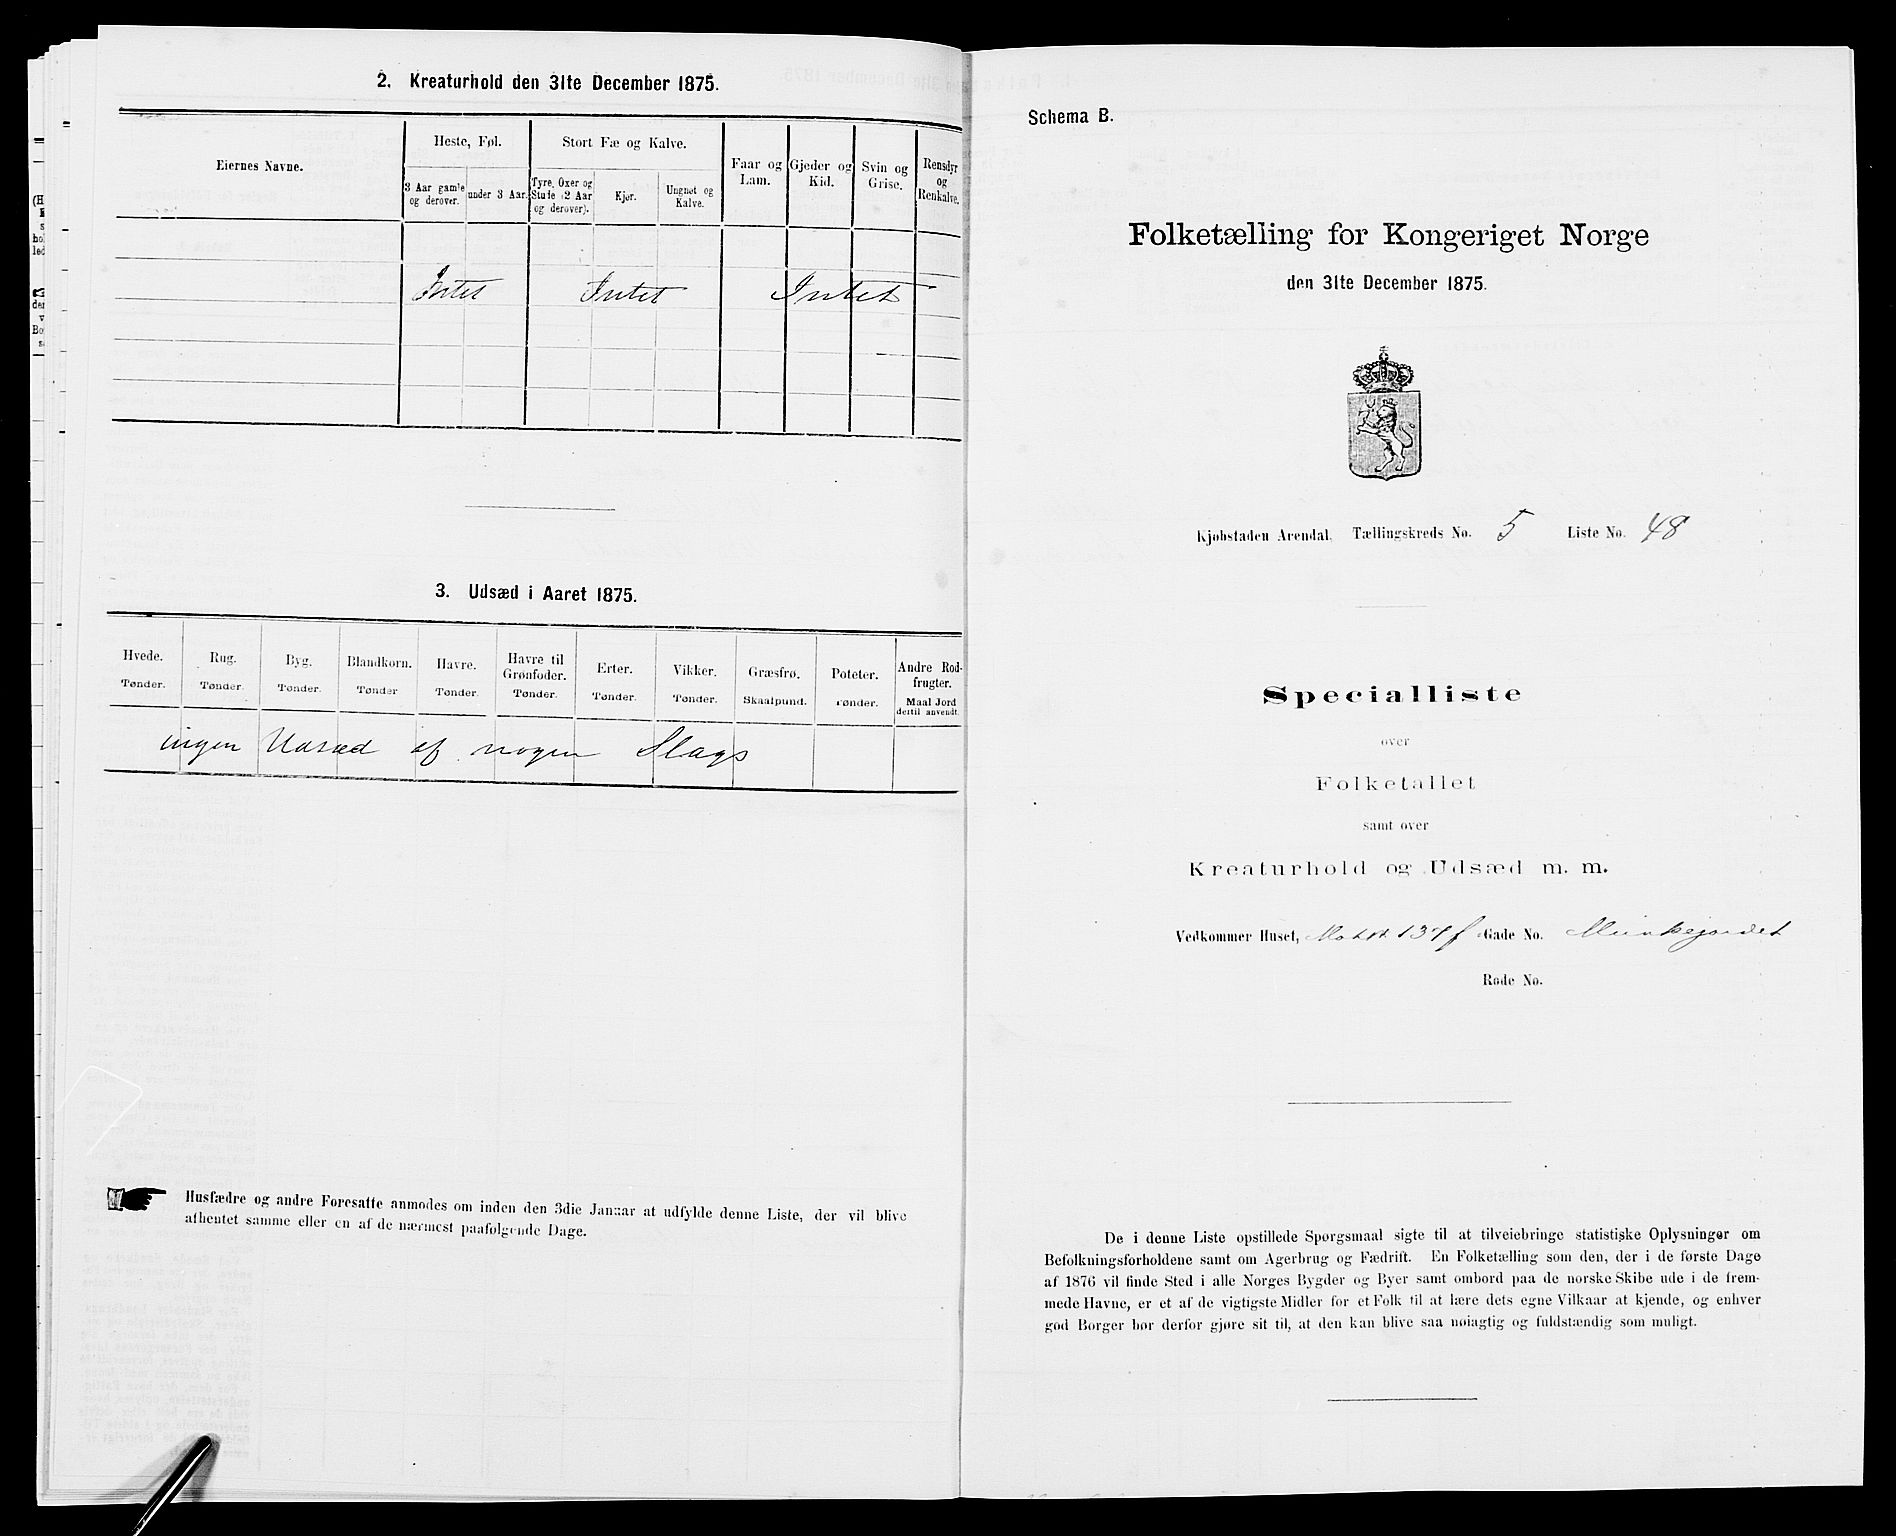 2. Kreaturhold den 31te December 1875.
Eiernes Navne.
Heste, Føl.
Stort Fæ og Kalve.
Faar og Lam.
Gjeder og Kid.
Svin og Grise.
Rensdyr og Renkalve.
3 Aar gamle og derover.
under 3 Aar.
Tyre, Oxer og Stude (2 Aar og derover).
Kjør.
Ungnøt og Kalve.
Intet Intet Intet
3. Udsæd i Aaret 1875.
Hvede. Tønder.
Rug. Tønder.
Byg. Tønder.
Blandkorn. Tønder
Havre. Tønder.
Havre til Grønfoder. Tønder.
Erter. Tønder.
Vikker. Tønder.
Græsfrø. Skaalpund.
Poteter. Tønder.
Andre Rodfrugter. Maal Jord dertil anvendt.
ingen Udsæd af nogen Slags
Husfædre og andre Foresatte anmodes om inden den 3die Januar at udfylde denne Liste, der vil blive
afhentet samme eller en af de nærmest paafølgende Dage.
Schema B.
Folketælling for Kongeriget Norge
den 31te December 1875.
Kjøbstaden Arendal, Tællingskreds No. 5 Liste No. 48
Specialliste
over
Folketallet
samt over
Kreaturhold og Udsæd m. m.
Vedkommer Huset, 137f Gade No. Munkejordet
Rode No.
De i denne Liste opstillede Spørgsmaal sigte til at tilveiebringe statistiske Oplysninger om
Befolkningsforholdene samt om Agerbrug og Fædrift. En Folketælling som den, der i de første Dage
af 1876 vil finde Sted i alle Norges Bygder og Byer samt ombord paa de norske Skibe ude i de frem-
mede Havne, er et af de vigtigste Midler for et Folk til at lære dets egne Vilkaar at kjende, og enhver
god Borger bør derfor gjøre sit til, at den kan blive saa nøiagtig og fuldstændig som muligt.